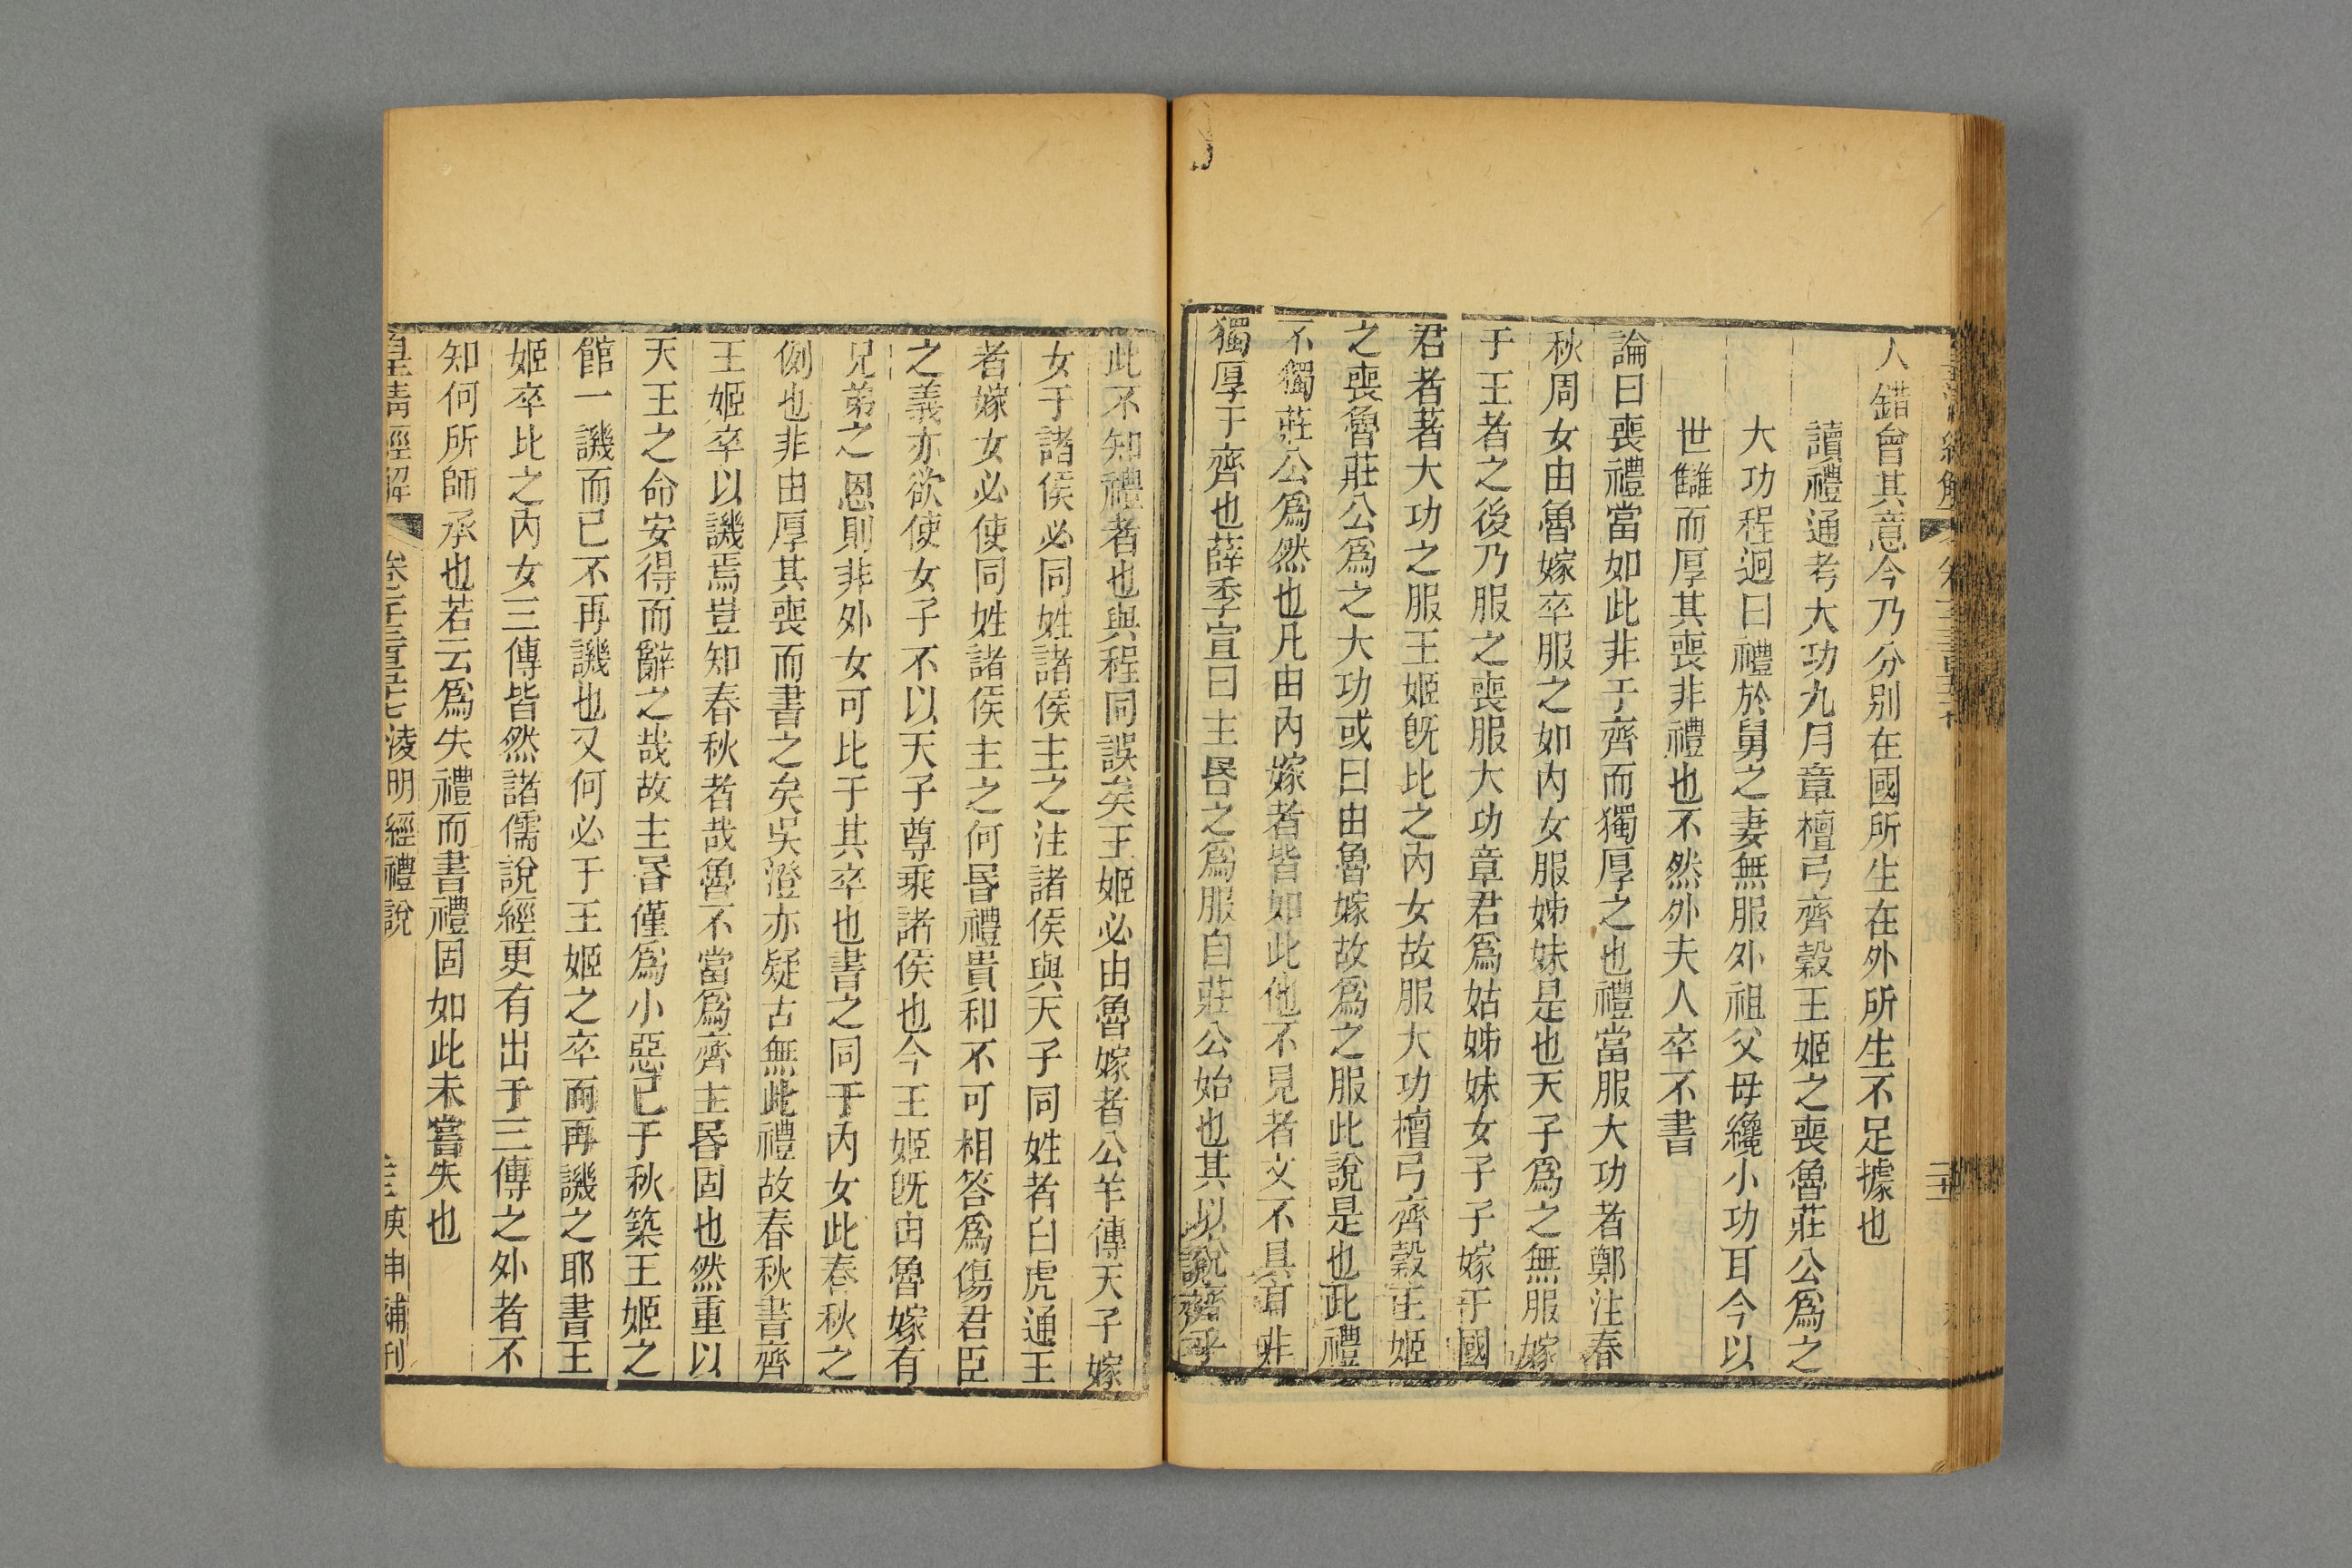 人錯會其意今乃分別在國所生在外所生不足據也
讀禮通考大功九月章檀弓齊穀王姬之喪魯莊公爲之
大功程迥曰禮於舅之妻無服外祖父母纔小功耳今以
世讎而厚其喪非禮也不然外夫人卒不書
論曰喪禮當如此非于齊而獨厚之也禮當服大功者鄭注春
秋周女由魯嫁卒服之如内女服姊妹是也天子爲之無服嫁
于王者之後乃服之喪服大功章君爲姑姊妹女子子嫁于國
君者著大功之服王姬既比之内女故服大功檀弓齊穀王姬
之喪魯莊公爲之大功或曰由魯嫁故爲之服此說是也此禮
不獨莊公爲然也凡由内嫁者皆如此他不見者文不具耳非
獨厚于齊也薛季宣曰主昬之爲服自莊公始也其以說齊乎
此不知禮者也與程同誤矣王姬必由魯嫁者公羊傳天子嫁
女于諸侯必同姓諸侯主之注諸侯與天子同姓者白虎通王
者嫁女必使同姓諸侯主之何昬禮貴和不可相答爲傷君臣
之義亦欲使女子不以天子尊乘諸侯也今王姬既由魯嫁有
兄弟之恩則非外女可比于其卒也書之同于内女此春秋之
例也非由厚其喪而書之矣吳澄亦疑古無此禮故春秋書齊
王姬卒以譏焉豈知春秋者哉魯不當爲齊主昬固也然重以
天王之命安得而辭之哉故主昬僅爲小惡已于秋築王姬之
館一譏而已不再譏也又何必于王姬之卒而再譏之耶書王
姬卒比之内女三傳皆然諸儒說經更有出于三傳之外者不
知何所師承也若云爲失禮而書禮固如此未嘗失也
皇清經解
卷千三百五十七
淩明經禮說
庚申補刊